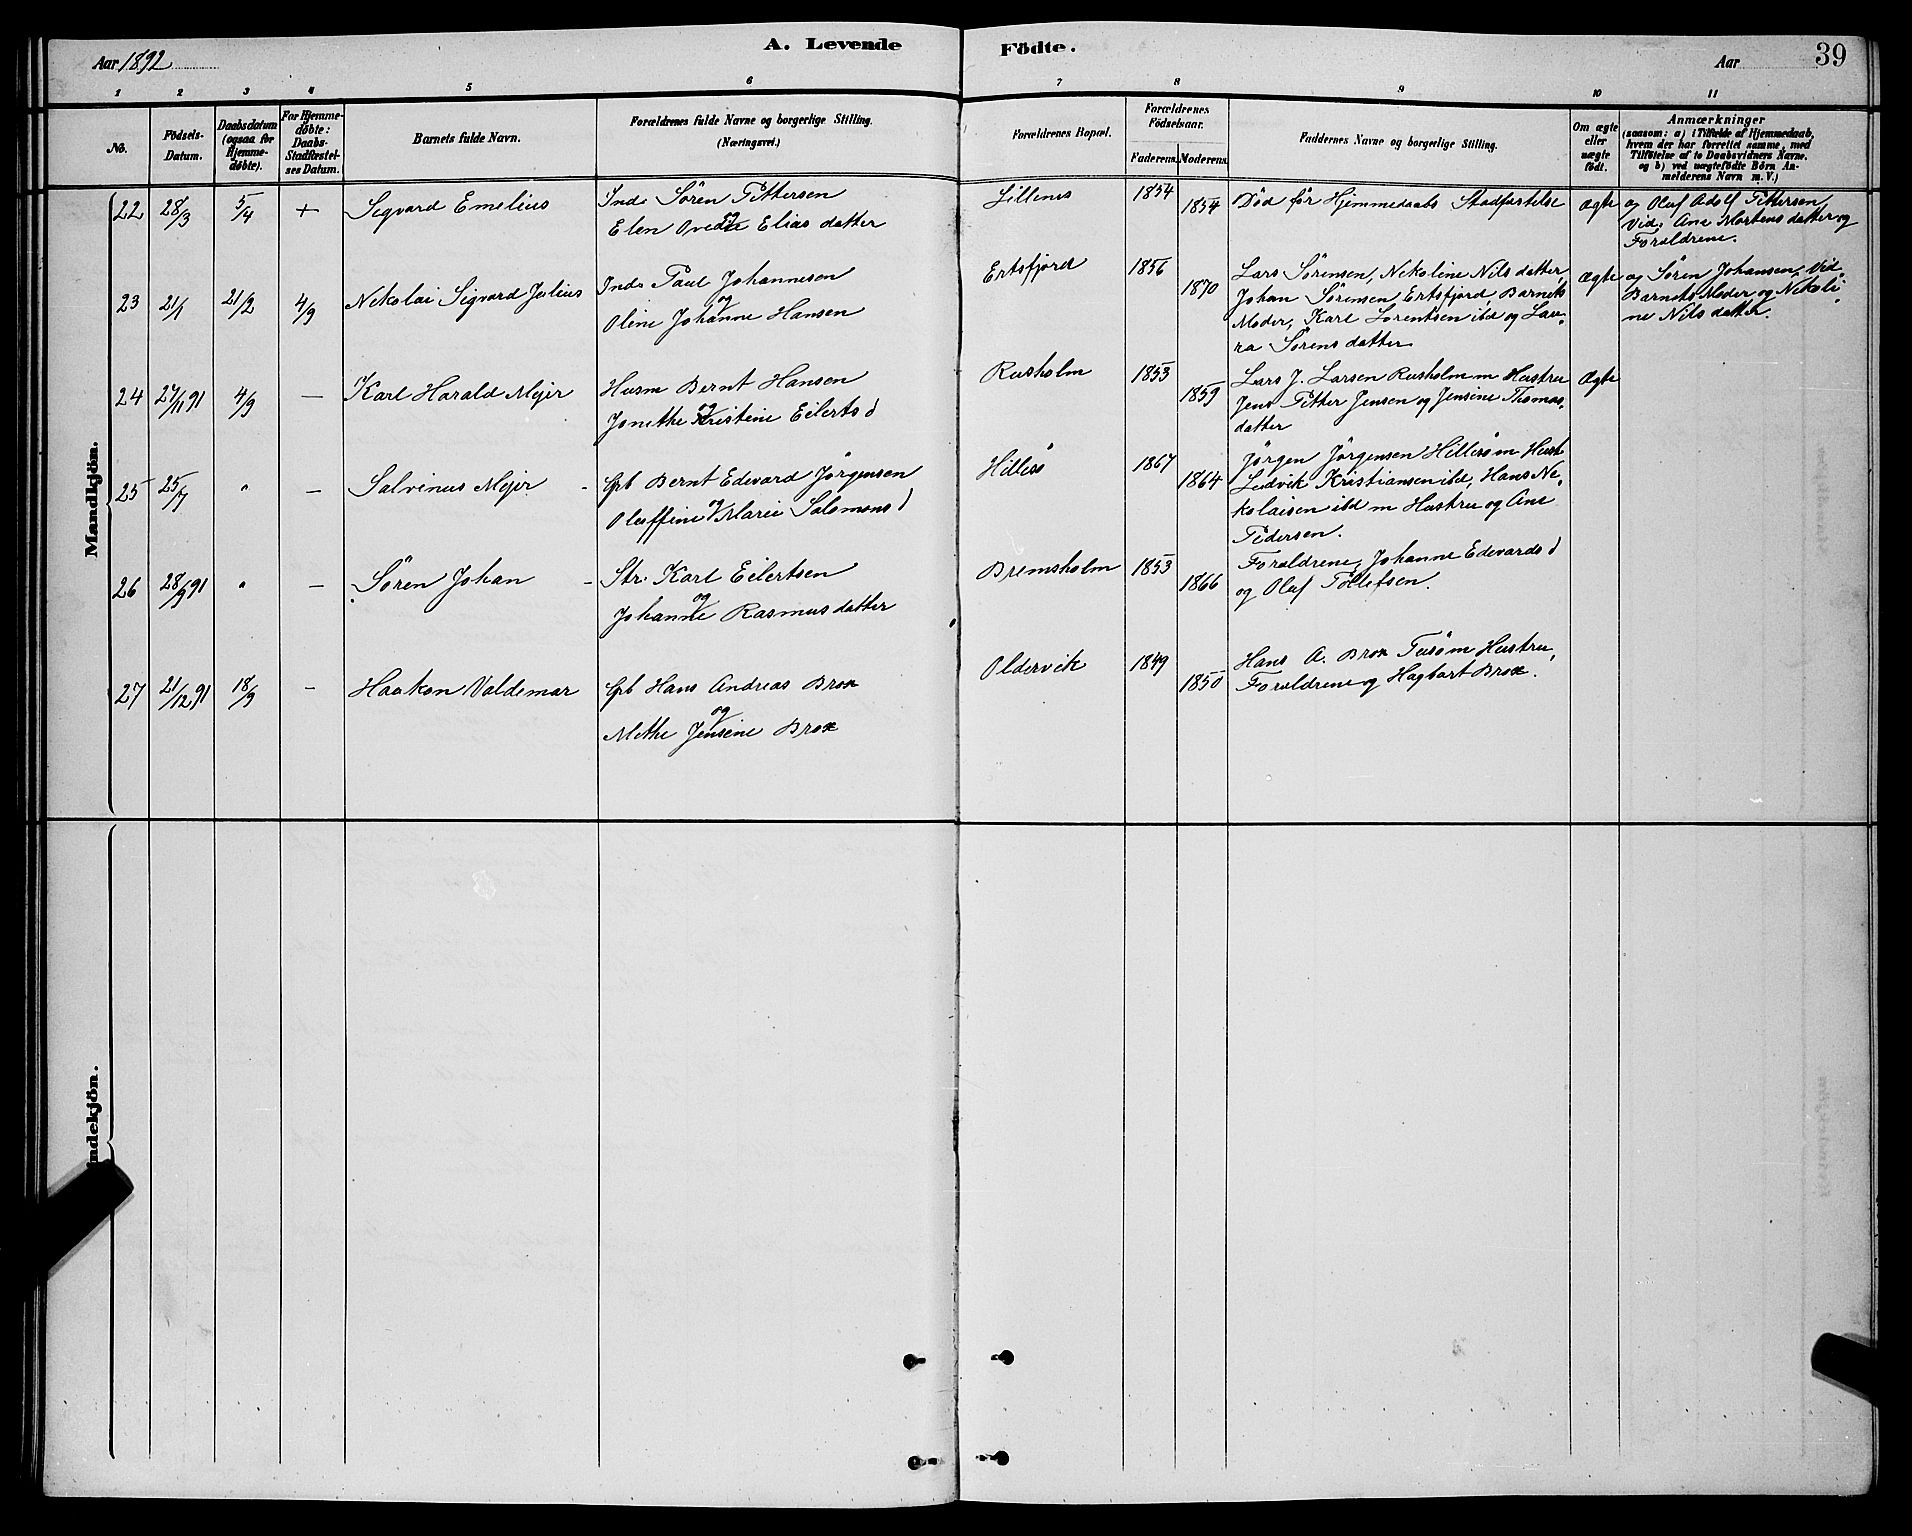 A. Levende Födte.
Aar 1892
Aar
39
1 2 3 4 5 6 7 8 9 10 11
No.
Födsels-Datum.
Daabsdatum (ogsaa for Hjemme-døbte).
For Hjemme-døbte: Daabs-Stadfæstel-ses Datum.
Barnets fulde Navn.
Forældrenes fulde Navne og borgerlige Stilling. (Næringsvei.)
Forældrenes Bopæl.
Forældrenes Fødselsaar.
Faderens.
Moderens.
Faddernes Navne og borgerlige Stilling.
Om ægte eller uægte født.
Anmærkninger
(saasom: a) i Tilfælde af Hjemmedaab, hvem der har forrettet samme, med Tilföielse af to Daabsvidners Navne, og b) ved uægtefødte Börn Anmelderens Navn m. V.)
Mandkjön.
22 28/3 5/4 + Sigvard Emelius
Inds Sören Pettersen
og
Elen Ovedie Elias datter
Lillenes 1854
1854
Död för Hjemmedaabs Stadfæstelse
Ægte
og Oluf Adolf Pettersen
Vid. Ane Mortensdatter og
Forældrene.
23 21/1 21/2 4/9 Nekolai Sigvard Julius
Inds Paul Johannesen
og
Oline Johanne Hansen
Ertsfjord 1856
1870
Lars Sörensen, Nekoline Nils datter,
Johan Sörensen Ertsfjord, Barnets
Moder, Karl Lorentsen ibd og Lau-
ra Sörens datter
Ægte
og Sören Johansen Vid.
Barnets Moder og Nekoli-
ne Nils datter.
24 27/11 91 4/9 — Karl Harald Mejer
Husm Bernt Hansen
og
Jonethe Kristine Eilerts d
Rusholm 1853
1859
Lars J. Larsen Rusholm m Hustru
Jens Petter Jensen og Jensine Thomas,
datter
Ægte
25 25/7 " — Salvinus Mejer
Gpb Bernt Edevard Jörgensen
og
Oluffine Marie Salomons d
Hillesö 1867
1864
Jörgen Jörgensen Hillesö m Hust
Ludvik Kristiansen ibd, Hans Ne-
kolaisen ibd m Hustru og Ane
Pedersen.
26 28/9 91 " — Sören Johan
Str. Karl Eilertsen
og
Johanne Rasmus datter
Bremsholm 1853
1866
Forældrene, Johanne Edevards d
og Oluf Tollefsen.
27 21/12 91 18/9 — Haakon Valdemar
Gpb Hans Andreas Brox
og
Methe Jensine Brox
Oldervik 1849
1850
Hans A. Brox Tusö m Hustru,
Forældrene og Hagbart Brox.
ndekjön.